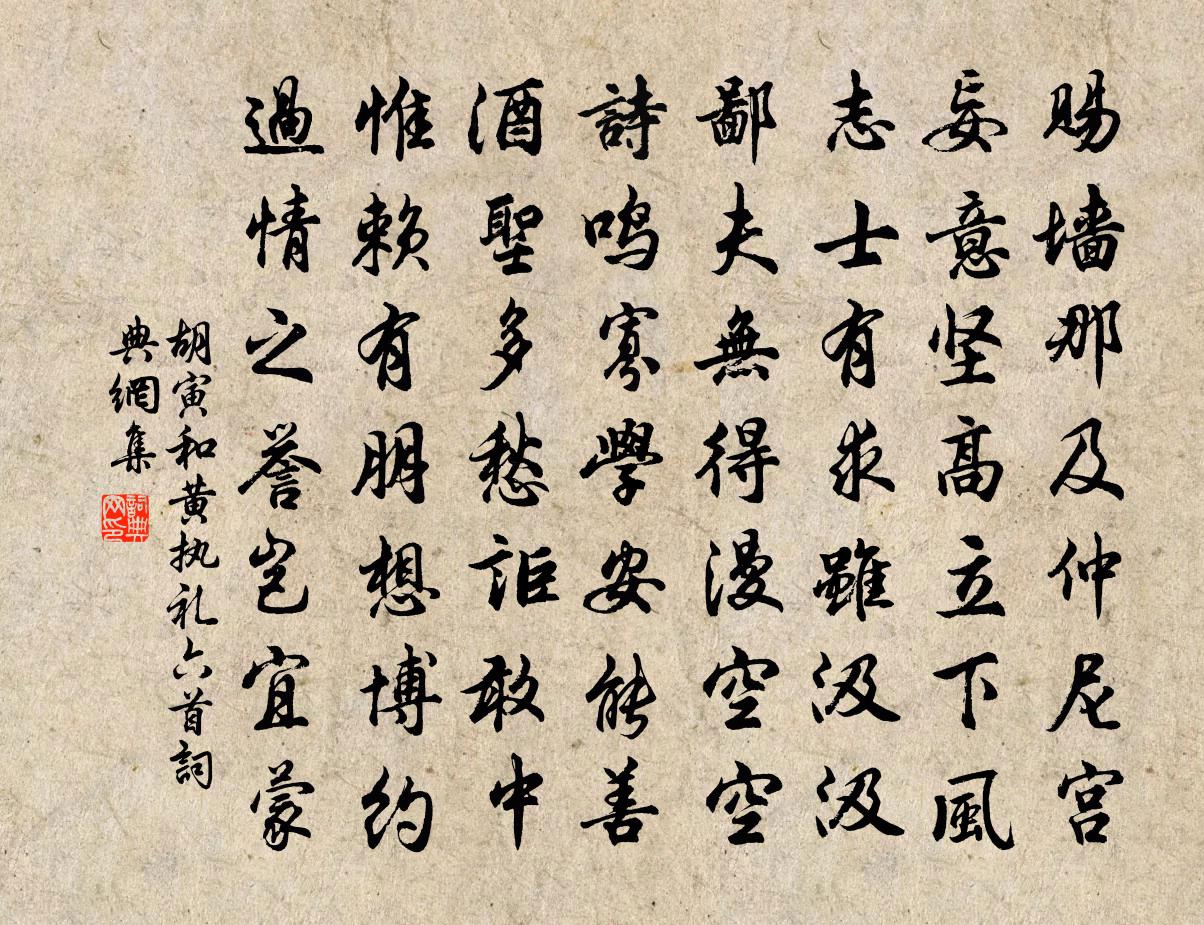 赐墙那及仲尼宫
妄意坚高立下風
志士有求雖汲汲
鄙夫無得漫空空
詩鸣寡學安能善
酒聖多愁詎敢中
惟赖有朋想博约
過情之誉岂宜蒙
胡寅和黄执礼六首詞
典網集
詞典
网印